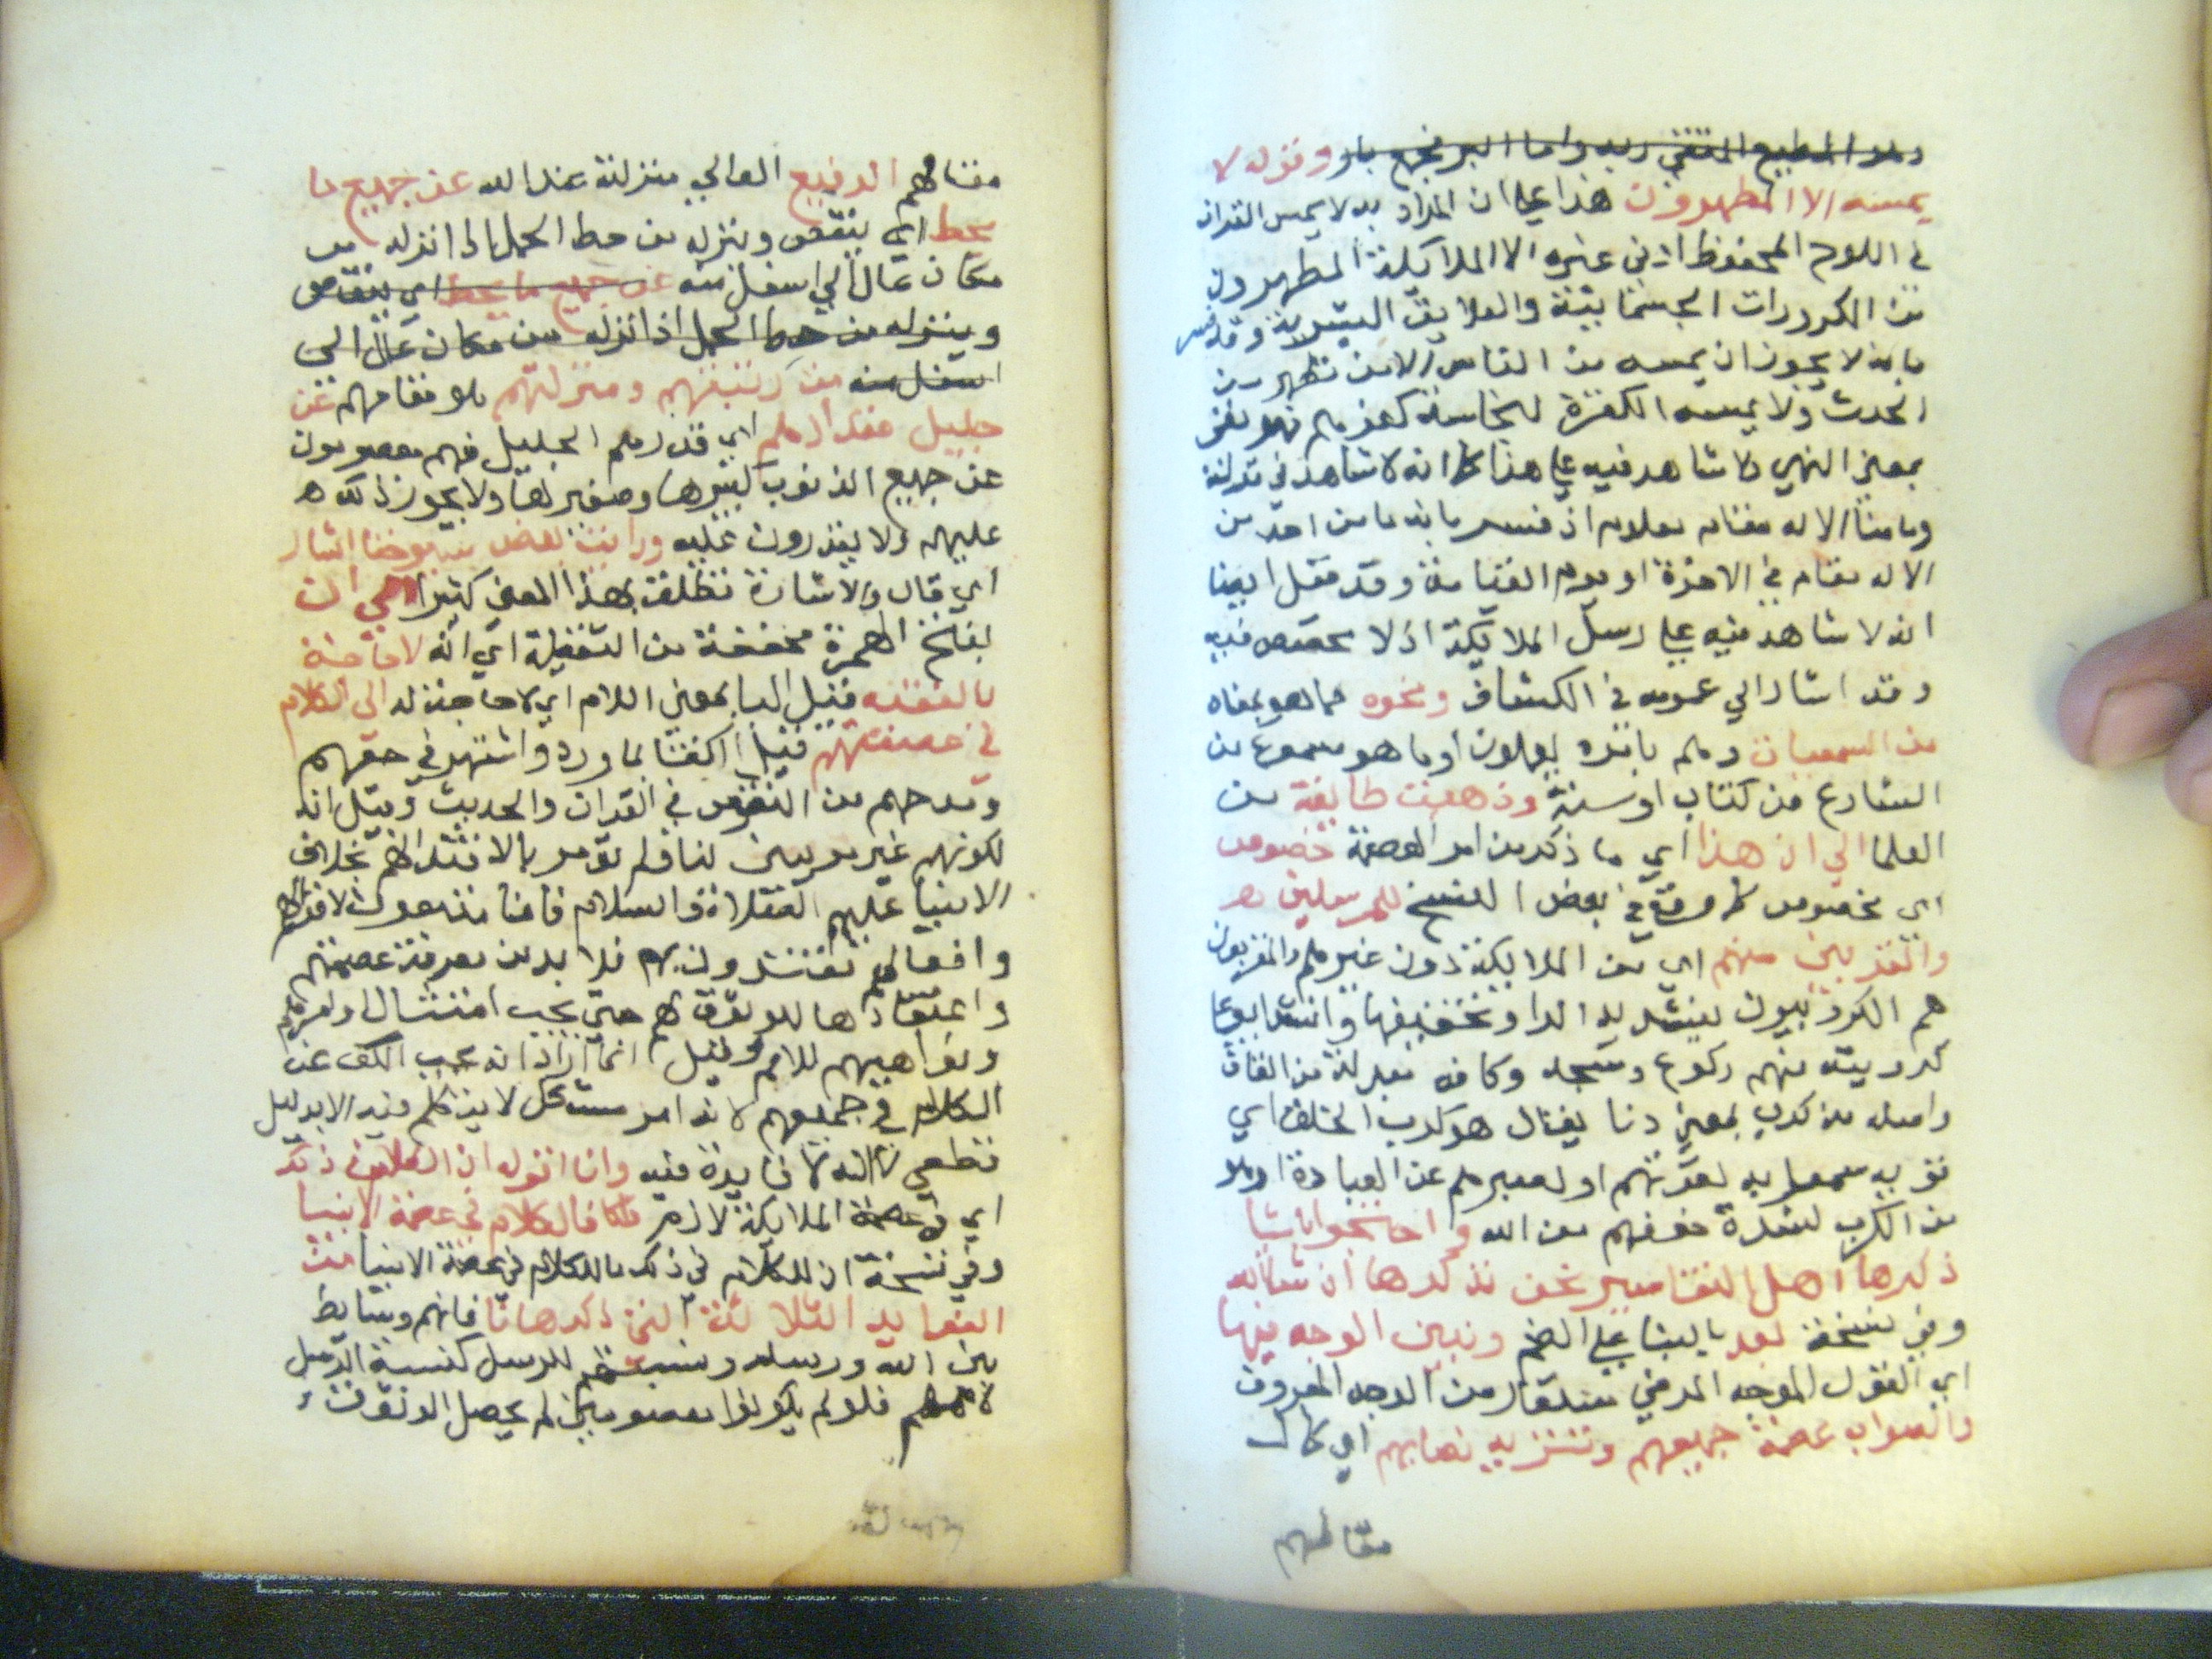 وهو المطيع المتقي ربه واما البر فجمع بار وقوله لا
يمسه الا المطهرون هذا علي ان المراد به لا يمس القران
في اللوح المحفوظ اذ في غيره الا الملايكة المطهرون
من الكدورات الجسمانية والعلايق البشرية وقد فسر
بانه لا يجوز ان يمسه من الناس الا من تطهر من
الحدث ولا يمسه الكفرة لنجاسة كفرهم فهو نفي
بمعني النهي ولا شاهد فيه علي هذا كما انه لا شاهد في قوله
وما منا الا له مقام معلوم اذ فسر بانه ما من احد من
الا له مقام في الاخرة او يوم القيامة وقد قيل ايضا
انه لا شاهد فيه علي رسل الملايكة اذ لا تخصص فيه
وقد اشار الي عمومه في الكشاف ونحوه مما هو بمعناه
من السمعيات وهم بامره يعملون او ما هو مسموع من
الشارع من كتاب او سنة وذهبت طايفة من
العلما الي ان هذا اي ما ذكر من امر العصمة خصوص
اي مخصوص كما وقع في بعض النسخ للمرسلين
والمقربين منهم اي من الملايكة دون غيرهم والمقربون
هم الكروبيون بتشديد الرا وتخفيفها وانشد ابو علي
كروبية منهم ركوع وسجد وكافه مبدلة من القاف
واصله من كرب بمعني دنا يقال هو كرب الخلق اي
قريب سموا به لقربهم او لصبرهم عن العبادة او هو
من الكرب لشدة خوفهم من الله واحتجوا باشيا
ذكرها اهل التفاسير نحن نذكرها ان شا الله
وفي نسخة بعد بالبنا علي الضم ونبين الوجه فيها
اي القول الموجه المرضي منقولا من الوجه المعروف
والصواب عصمة جميعهم وتنزيه نصابهم اي كمال
مقامهم
مقامهم الرفيع العالي منزلة عند الله عن جميع ما
يحط اي ينقص وينزله من حط الحمل اذا انزله من
مكان عال الي اسفل منه عن جميع ما يحط اي ينقص
وينزله من حط الحمل اذا انزله من مكان عال الي
اسفل منه من رتبتهم ومنزلتهم وعلو مقامهم عن
جليل مقدارهم اي قدرهم الجليل فهم معصومون
عن جميع الذنوب كبيرها وصغيرها ولا يجوز ذلك
عليهم ولا يقدرون عليه ورايت بعض شيوخنا اشار
اي قال والاشارة تطلق بهذا المعني كثيرا الي ان
بفتح الهمزة مخففة من الثقيلة اي انه لا حاجة
بالفقيه قيل البا بمعني اللام اي لا حاجة له الي الكلام
في عصمتهم قيل اكتفا بما ورد واشتهر في حقهم
ومدحهم من النصوص في القران والحديث وقيل انه
لكونهم غير مرسلين لنا ولم نؤمر بالاقتدا بهم بخلاف
الانبيا عليهم الصلاة والسلام فاننا متبعون لاقوالهم
وافعالهم مقتدون بهم فلا بد من معرفة عصمتهم
واعتقادها للوثوق بهم حتي يجب امتثال اوامرهم
ونواهيهم للامم وقيل انما اراد انه يجب الكف عن
الكلام في جميعهم لانه امر مشكل لا يتكلم فيه الا بدليل
قطعي لا انه لا فايدة فيه وانا اقول ان الكلام في ذلك
اي في عصمة الملايكة لازم كما الكلام في عصمة الانبيا
وفي نسخة ان للكلام في ذلك ما للكلام في عصمة الانبيا من
الفوايد الثلاثة التي ذكرها فانهم وسايط
بين الله ورسله ونسبتهم للرسل كنسبة الرسل
لاممهم فلو لم يكونوا معصومين لم يحصل الوثوق